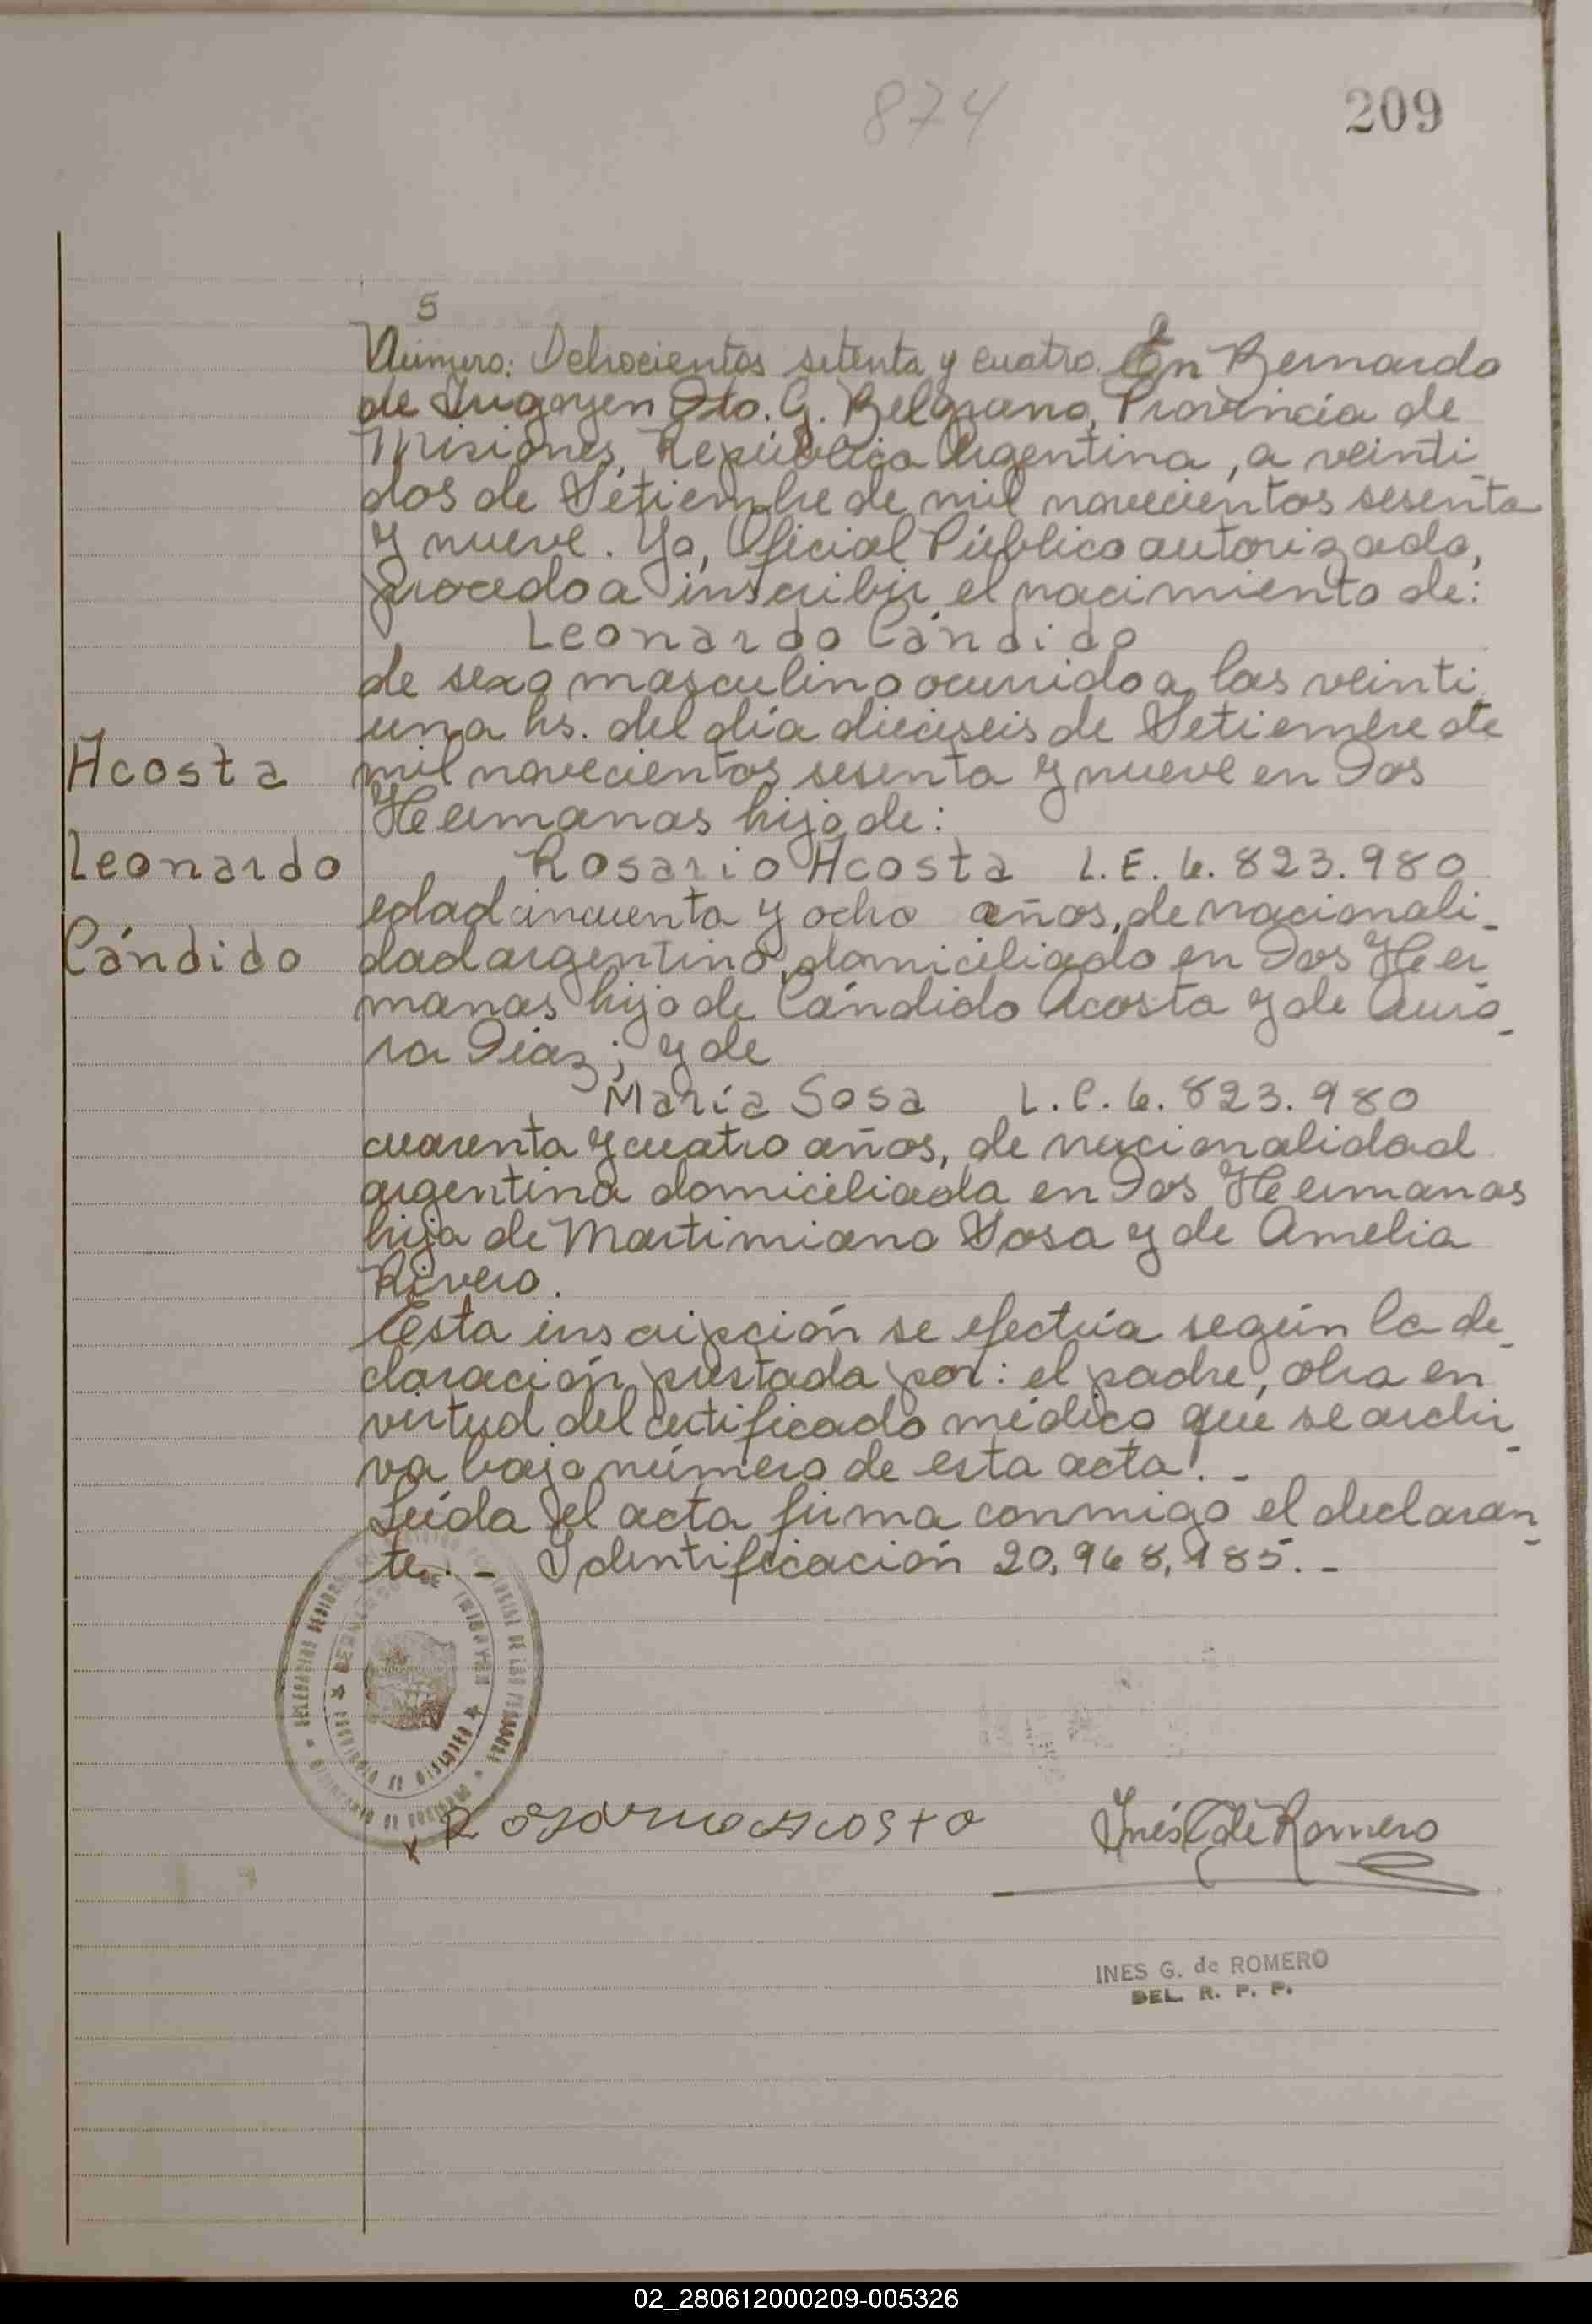 874
209
5
Número: Ochocientos setenta y cuatro. En Bernardo
de Irigoyen Dto. G. Belgrano, Provincia de
Misiones, República Argentina, a veinti
dos de Setiembre de mil novecientos sesenta
y nueve. Yo, Oficial Público autorizado,
procedo a inscribir el nacimiento de:
Leonardo Cándido
de sexo masculino ocurrido a las veinti
una hs. del día dieciseis de Setiembre de
Acosta
mil novecientos sesenta y nueve en Dos
Hermanas hijo de:
Leonardo
Rosario Acosta L.E. 6.823.980
edad cincuenta y ocho años, de nacionali-
Cándido
dad argentino, domiciliado en Dos Her
manas hijo de Cándido Acosta y de Auro-
ra Díaz; y de
María Sosa L.C. 6.823.980
cuarenta y cuatro años, de nacionalidad
argentina domiciliada en Dos Hermanas
hija de Martimiano Sosa y de Amelia
Rivero.
Esta inscripción se efectúa según la de-
claración prestada por: el padre, obra en
virtud del certificado médico que se archi-
va bajo número de esta acta.-
Leída el acta firma conmigo el declaran-
te.- Identificación 20,968,185.-
BERNARDO DE IRIGOYEN
x Rosario Acosta
Inés G de Romero
INES G. de ROMERO
DEL. R. P. P.
02_280612000209-005326